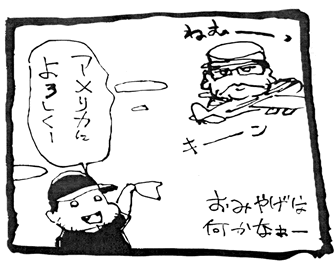 ねむーっ
キーン
アメリカに
よろしくー
おみやげは
何かなぁー